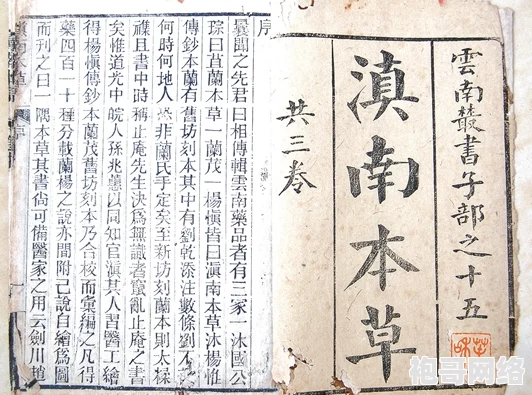 雲南叢書子部之十五
滇南本草
共三卷
序
曩聞之先君曰相傳輯雲南藥品者有三家一沐國公
琮曰苴蘭本草一蘭茂一楊愼皆曰滇南本草沐楊惟
傳鈔本蘭有舊坊刻本其中有劉乾添注數條劉不
何時何地人然非蘭氏手定矣至新坊刻蘭本則太
襍且書中時稱止庵先生決爲無識者竄亂止庵之書
矣惟道光中皖人孫兆蕙以同知官滇其人習醫工繪
得楊愼傳鈔本蘭茂舊坊刻本乃合校而彙編之凡得
藥四百一十種分載蘭楊之說亦間附己說自繪爲圖
而刊之曰一隅本草其書尙可備醫家之用云劍川趙
袍哥网络